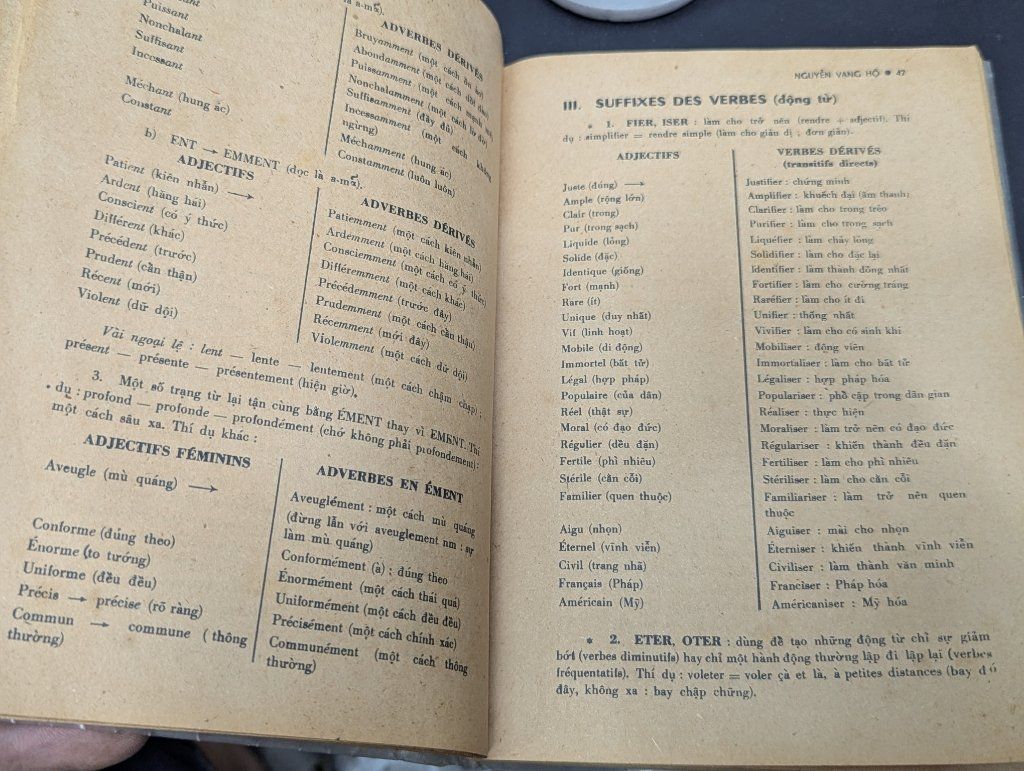 Puissant
Nonchalant
Suffisant
Incessant
Méchant (hung ác)
Constant
(đọc là a-mã).
ADVERBES DÉRIVÉS
Bruyamment (một cách ồn ào)
Abondamment (một cách dồi dào)
Puissamment (một cách mạnh mẽ)
Nonchalamment (một cách lơ đãng)
Suffisamment (đầy đủ)
Incessamment (một cách không
ngừng)
Méchamment (hung ác)
Constamment (luôn luôn)
b) ENT → EMMENT (đọc là a-mã).
ADJECTIFS
Patient (kiên nhẫn) →
Ardent (hăng hái)
Conscient (có ý thức)
Différent (khác)
Précédent (trước)
Prudent (cẩn thận)
Récent (mới)
Violent (dữ dội)
ADVERBES DÉRIVÉS
Patiemment (một cách kiên nhẫn)
Ardemment (một cách hăng hái)
Consciemment (một cách có ý thức)
Différemment (một cách khác)
Précédemment (trước đây)
Prudemment (một cách cẩn thận)
Récemment (mới đây)
Violemment (một cách dữ dội)
Vài ngoại lệ : lent — lente — lentement (một cách chậm chạp) ;
présent — présente — présentement (hiện giờ).
3. Một số trạng từ lại tận cùng bằng ÉMENT thay vì EMENT. Thí
dụ : profond — profonde — profondément (chớ không phải profondement):
một cách sâu xa. Thí dụ khác :
ADJECTIFS FÉMININS
Aveugle (mù quáng) →
Conforme (đúng theo)
Énorme (to tướng)
Uniforme (đều đều)
Précis → précise (rõ ràng)
Commun → commune (thông
thường)
ADVERBES EN ÉMENT
Aveuglément : một cách mù quáng
(đừng lẫn với aveuglement nm : sự
làm mù quáng)
Conformément (à) : đúng theo
Énormément (một cách thái quá)
Uniformément (một cách đều đều)
Précisément (một cách chính xác)
Communément (một cách thông
thường)
NGUYỄN VANG HỘ • 47
III. SUFFIXES DES VERBES (động từ)
* 1. FIER, ISER : làm cho trở nên (rendre + adjectif). Thí
dụ : simplifier = rendre simple (làm cho giản dị ; đơn giản).
ADJECTIFS
Juste (đúng) →
Ample (rộng lớn)
Clair (trong)
Pur (trong sạch)
Liquide (lỏng)
Solide (đặc)
Identique (giống)
Fort (mạnh)
Rare (ít)
Unique (duy nhất)
Vif (linh hoạt)
Mobile (di động)
Immortel (bất tử)
Légal (hợp pháp)
Populaire (của dân)
Réel (thật sự)
Moral (có đạo đức)
Régulier (đều đặn)
Fertile (phì nhiêu)
Stérile (cằn cỗi)
Familier (quen thuộc)
Aigu (nhọn)
Éternel (vĩnh viễn)
Civil (trang nhã)
Français (Pháp)
Américain (Mỹ)
VERBES DÉRIVÉS
(transitifs directs)
Justifier : chứng minh
Amplifier : khuếch đại (âm thanh)
Clarifier : làm cho trong trẻo
Purifier : làm cho trong sạch
Liquéfier : làm chảy lỏng
Solidifier : làm cho đặc lại
Identifier : làm thành đồng nhất
Fortifier : làm cho cường tráng
Raréfier : làm cho ít đi
Unifier : thống nhất
Vivifier : làm cho có sinh khí
Mobiliser : động viên
Immortaliser : làm cho bất tử
Légaliser : hợp pháp hóa
Populariser : phổ cập trong dân gian
Réaliser : thực hiện
Moraliser : làm trở nên có đạo đức
Régulariser : khiến thành đều đặn
Fertiliser : làm cho phì nhiêu
Stériliser : làm cho cằn cỗi
Familiariser : làm trở nên quen
thuộc
Aiguiser : mài cho nhọn
Éterniser : khiến thành vĩnh viễn
Civiliser : làm thành văn minh
Franciser : Pháp hóa
Américaniser : Mỹ hóa
* 2. ETER, OTER : dùng để tạo những động từ chỉ sự giảm
bớt (verbes diminutifs) hay chỉ một hành động thường lập đi lập lại (verbes
fréquentatifs). Thí dụ : voleter = voler çà et là, à petites distances (bay đó
đây, không xa : bay chập chững).